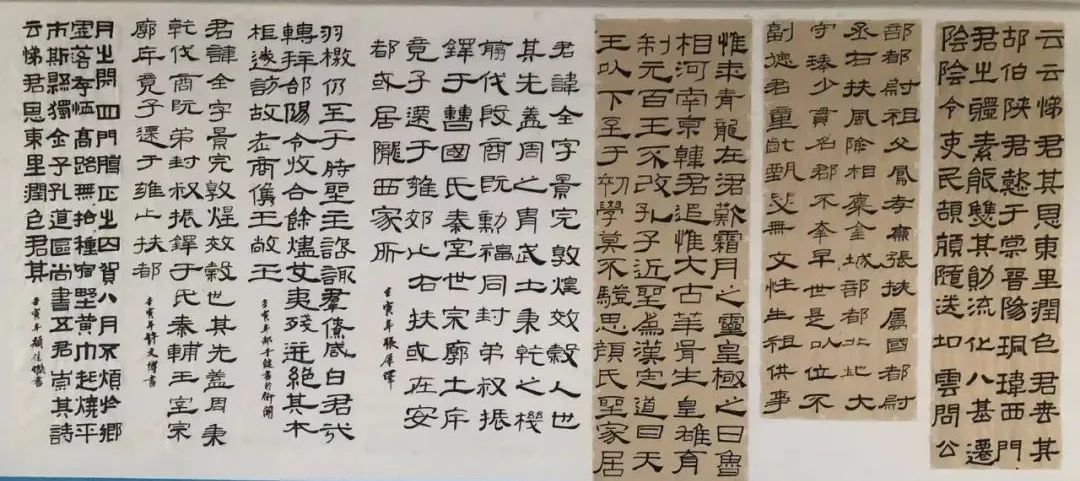 云云悌君其恩東里潤色君其
胡伯陝君懿于棠晉陽珮瑋西門
君之彊素能雙其勛流化八基遷
陰陰令吏民頡頏隨送如雲問公
部都尉祖父鳳孝廉張掖屬國都尉
丞右扶風隃相糜金城部都北地大
守少貫名郡不幸早世是以位不
副德君童齔甄無文性生祖供事
惟青龍在涒歎霜月之靈皇極之日魯
相河南京韓君追惟大古華胥生皇雄育
制元百王不改孔子近聖爲漢定道自天
王以下至于初學莫不驗思顏氏聖家居
君諱全字景完敦煌效穀人世
其先蓋周之冑武王秉乾之機
翦伐殷商既勳福同封弟叔振
鐸于曹國氏秦室世宗廓土斥
竟子遷于雍郊止右扶或在安
都或居隴西家所
壬寅年張犀鐸
羽檄仍至于時聖主諮諏群僚咸曰君哉
轉拜郃陽令收合餘燼芟夷殘迸絕其本
根遂訪故老商儁王敞王
壬寅年書於
君諱全字景完敦煌效穀也其先蓋周秉
乾伐商既弟封叔振鐸于氏秦輔王室宗
廓斥竟子還于雍止扶都
壬寅年許文博書
月之開四門正之四賀八月不煩於鄉
虛落存恤高路無拾種宿野黃巾起燒平
市斯縣獨全子孔道區尚書五君崇其詩
云悌君恩東里潤色君其
壬寅年顏佳書